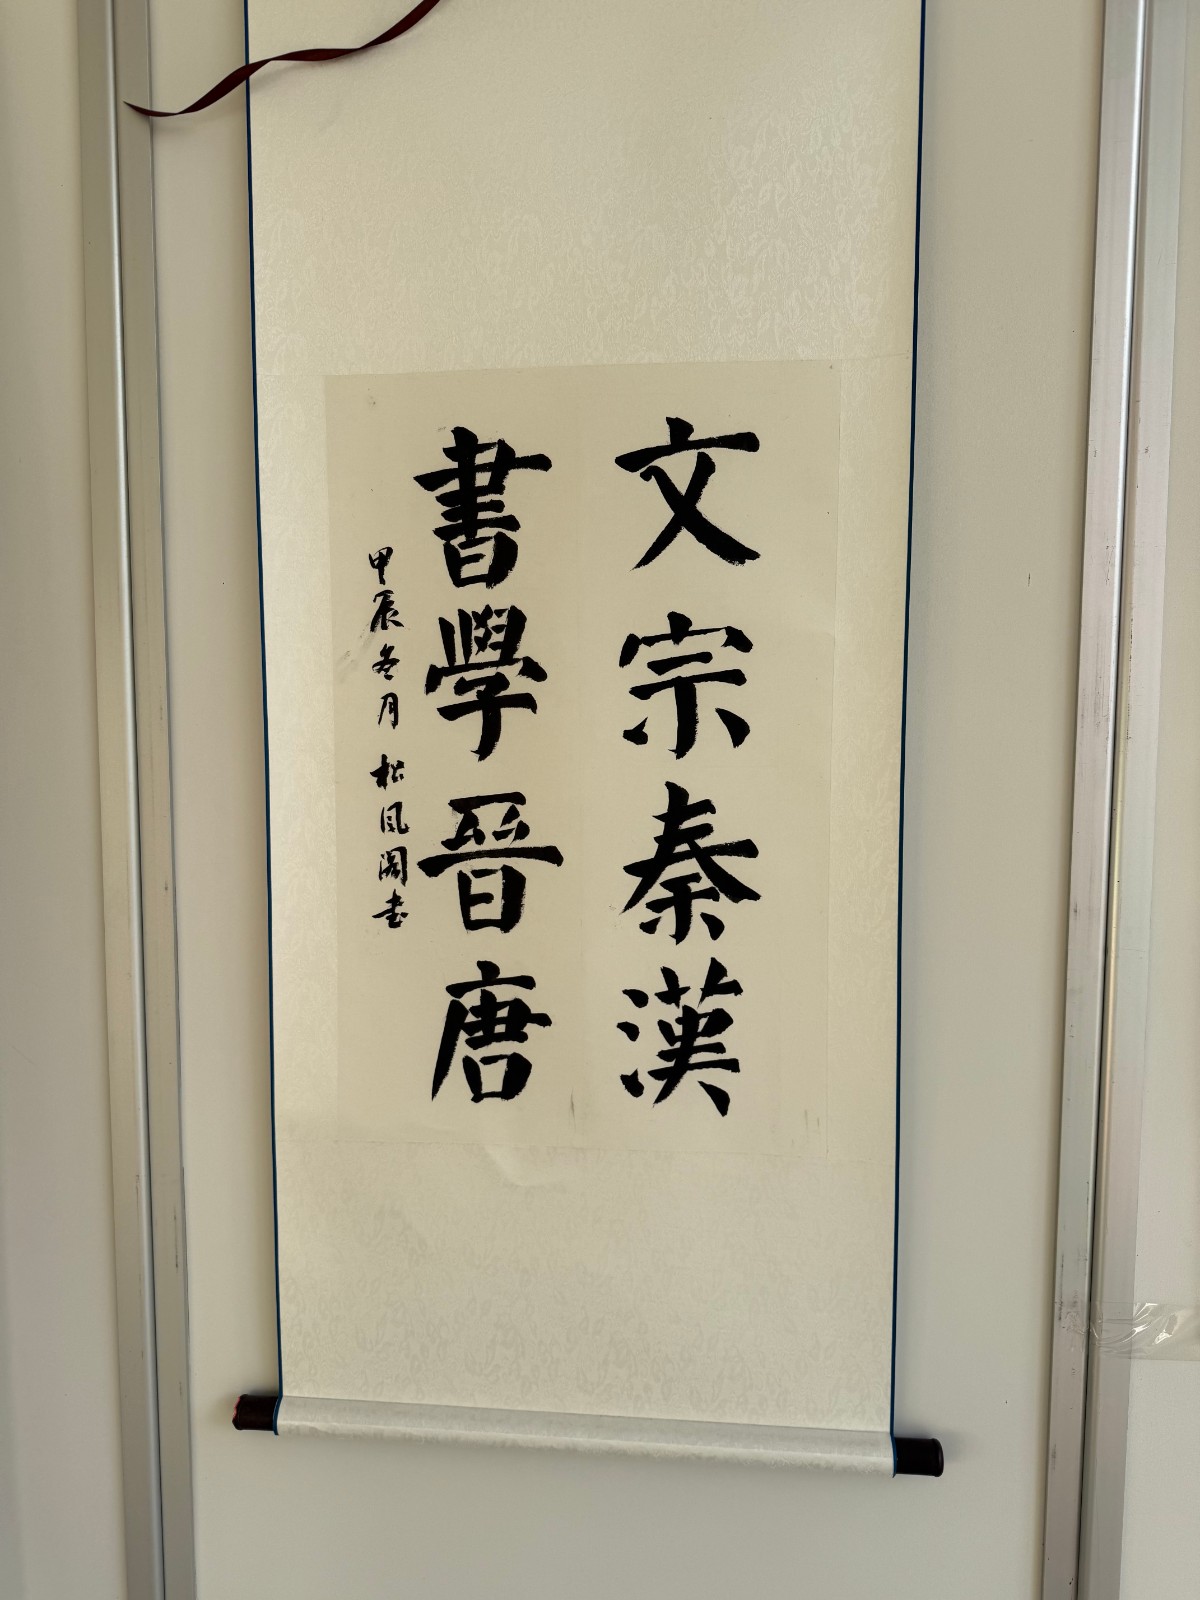 文宗秦漢
書學晉唐
甲辰冬月松風閣書